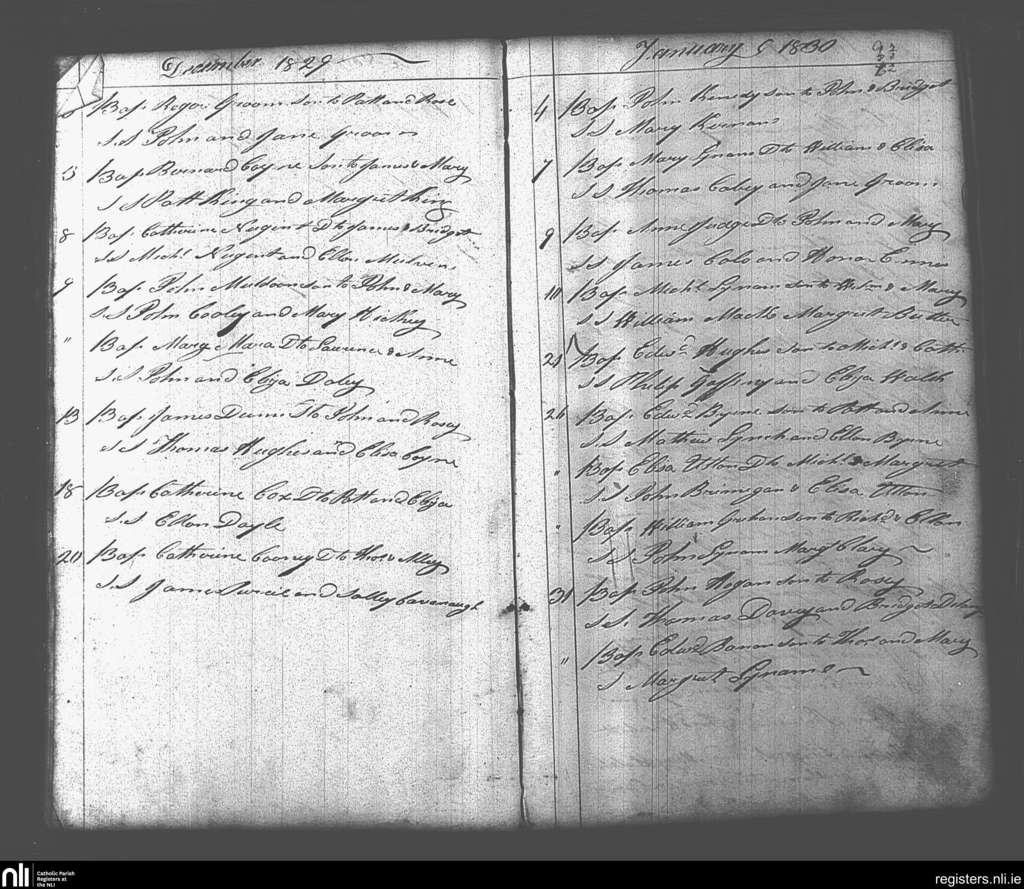 December 1829
Bap. Roger Groom son to Patt and Rose
SS John and Jane Groom
5 Bap Bernard Coyne son to James & Mary
SS Patt King and Margret King
8 Bap. Catherine Nugent Dt to James & Bridget
SS Michl Nugent and Ellen
9 Bap John Muldoon son to John & Mary
SS John Cooley and Mary Hickey
" Bap. Marg Mara Dt to Laurence & Anne
SS John and Eliza Daley
13 Bap James Dunn to John and Rosey
SS Thomas Hughes and Elisa Coyne
18 Bap Catherine Cox Dt to Patt and Eliza
SS Ellen Doyle
20 Bap Catherine Cooney Dt to Thos & Alley
SS James and Salley Cavenaugh
January 1830
4 Bap John Kenedy son to John & Bridget
SS Mary Kernans
7 Bap Mary Lynam Dt to William & Elisa
SS Thomas and Jane Groom
9 Bap Anne Judge Dt to John and Mary
SS James Cole and Honor Ennis
10 Bap Michl Lynam son to & Mary
SS William Mack & Margret Butter
24 Bap Edwd Hughes son to Michl & Cath
SS Philip Gaffney and Eliza Walsh
26 Bap Edwd Byrne son to Patt and Anne
SS Mathew Lynch and Ellen Byrne
" Bap Elisa Utton Dt to Michl & Margret
SS John Brinigan & Elisa Utton
" Bap William Graham son to Richd & Ellen
SS John Lynam Margt Clary
31 Bap John Hogan son to Rosey
SS Thomas Davey and Bridget
" Bap Edwd Banan son to Thos and Mary
S Margret Lynam
nli
Catholic Parish
Registers at
the NLI
registers.nli.ie